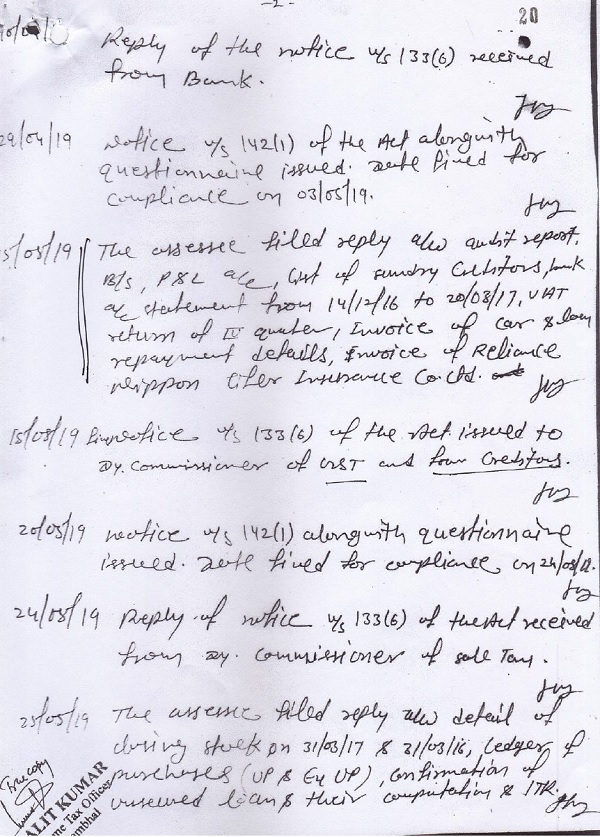 -2-
20
Reply of the notice u/s 133(6) received
from Bank.
29/04/19 Notice u/s 142(1) of the Act alongwith
questionnaire issued. Date fixed for
compliance on 03/05/19.
The assessee filled reply also audit report,
B/S, P&L a/c, list of sundry creditors, bank
a/c statement from 14/12/16 to 20/08/17, VAT
return of IV quater, Invoice of car & loan
repayment details, Invoice of Reliance
Nippon Life Insurance Co. Ltd.
15/05/19 notice u/s 133(6) of the Act issued to
Dy. Commissioner of and four Creditors.
20/05/19 Notice u/s 142(1) alongwith questionnaire
issued. Date fixed for compliance on 24/05/19.
24/05/19 Reply of notice u/s 133(6) of the Act received
from Dy. Commissioner of sale Tax.
25/05/19 The assessee filled reply also detail of
closing stock on 31/03/17 & 31/03/16, Ledger of
purchases (UP & Ex UP), confirmation of
unsecured loans & their computation & ITR.
True copy
ALIT KUMAR
me Tax Officer
ambhal